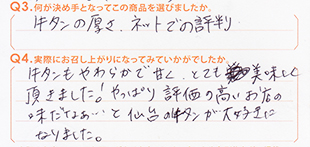 Q3.何が決め手となってこの商品を選びましたか。
牛タンの厚さ、ネットでの評判
Q4.実際にお召し上がりになってみていかがでしたか。
牛タンもやわらかで甘く、とても美味しく
頂きました！やっぱり評価の高いお店の
味だなぁ…と仙台の牛タンが大好きに
なりました。